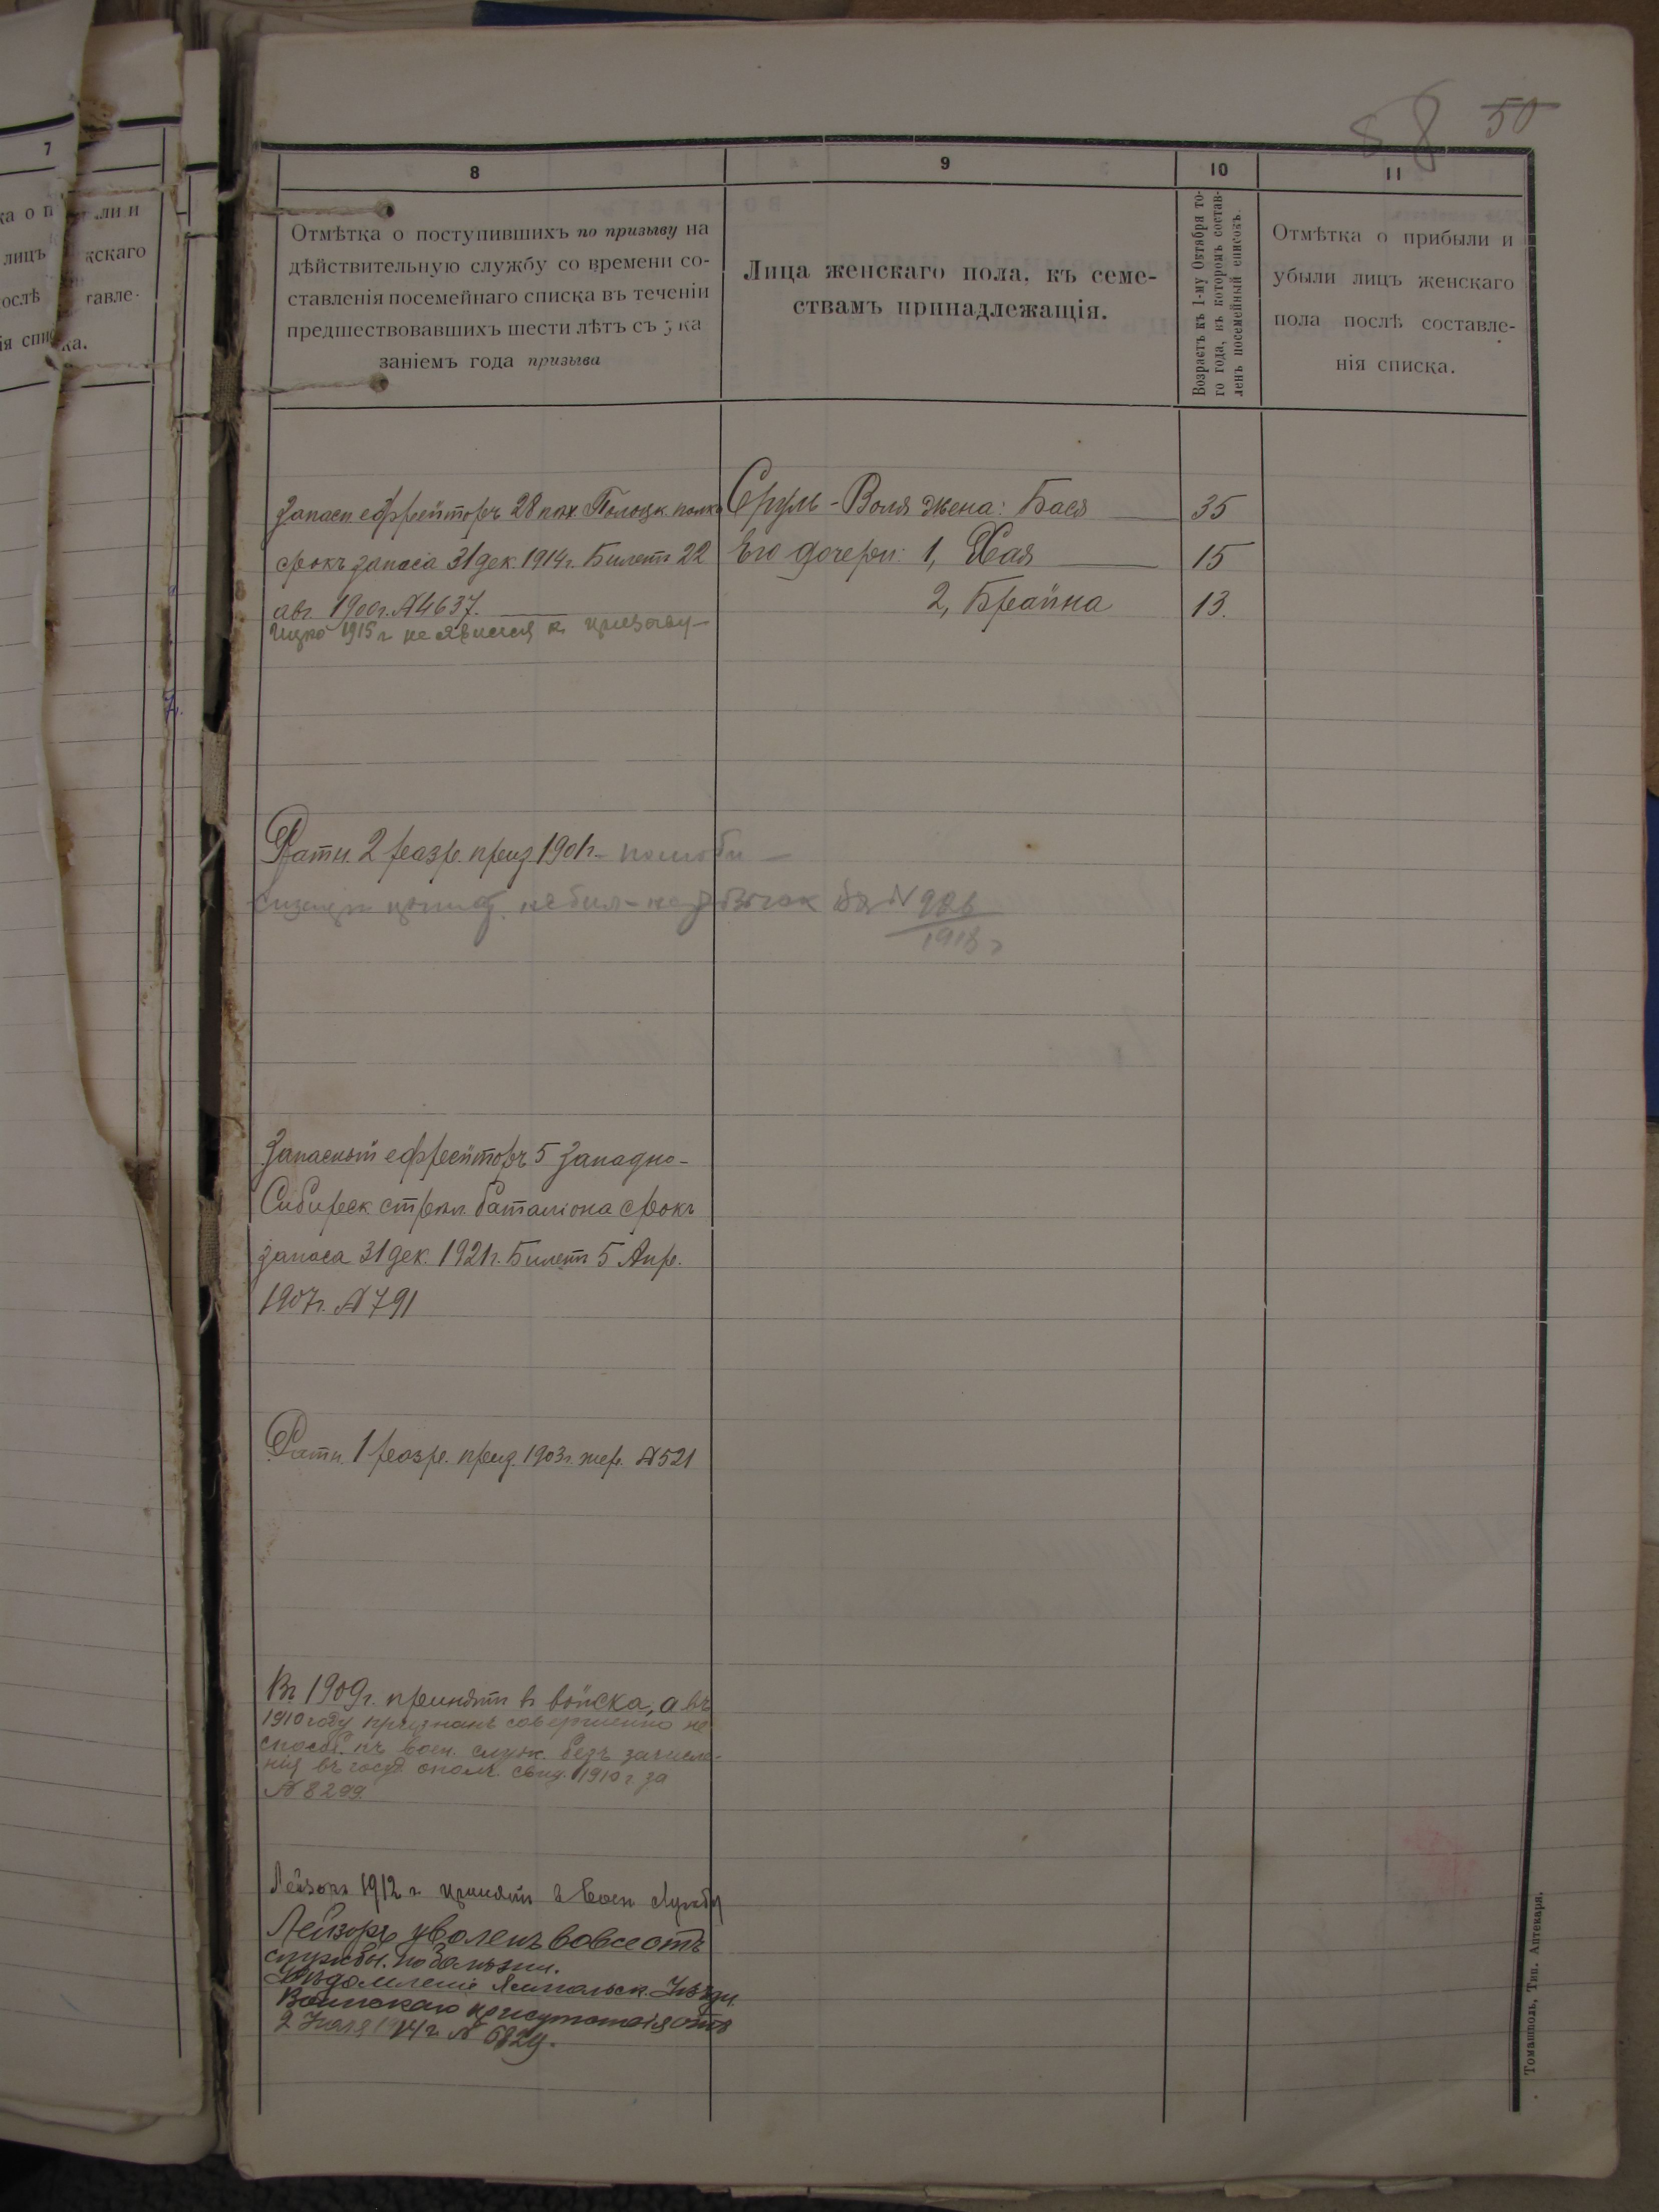 58 50
7
ка о п ли и
лицъ кскаго
ослѣ тавле-
ія спис ка.
8
9
10
11
Отмѣтка о поступившихъ по призыву на
дѣйствительную службу со времени со-
ставленія посемейнаго списка въ теченіи
предшествовавшихъ шести лѣтъ съ ука
заніемъ года призыва
Лица женскаго пола, къ семе-
ствамъ принадлежащія.
Возрастъ къ 1-му Октября то-
го года, въ которомъ состав-
ленъ посемейный списокъ.
Отмѣтка о прибыли и
убыли лицъ женскаго
пола послѣ составле-
нія списка.
Запасн ефрейторъ 28 пах. Полоцк. полка
срокъ запаса 31 дек. 1914г. Билетъ 22
авг. 1900г. № 4637.
Ицко 1915 г не явился к призыву
Сруль-Воля жена: Бася 35
Его дочери: 1, Хая 15
2, Брайна 13.
Ратн. 2 разр. приз 1901г.
№ 986
1918 г
Запасный ефрейторъ 5 Западно-
Сибирск. стрѣл. баталіона срокъ
запаса 31 дек. 1921г. Билетъ 5 Апр.
1907г. № 791
Ратн. 1 разр. приз. 1903г. жер. № 521
Въ 1909г. принятъ в войска, а въ
1910 году признанъ совершенно не
способ. къ воен. служ. безъ зачисле-
нія въ госуд. ополч. свид. 1910 г. за
№ 8299.
Лейзоръ 1912 г принятъ в воен службу
Лейзоръ уволенъ вовсе отъ
службы. по болѣзни.
Увѣдомленіе Ямпольск. Уѣздн.
Воинскаго присутствія отъ
2 Іюля 1914 г. №
Томашполь, Тип. Аптекаря.